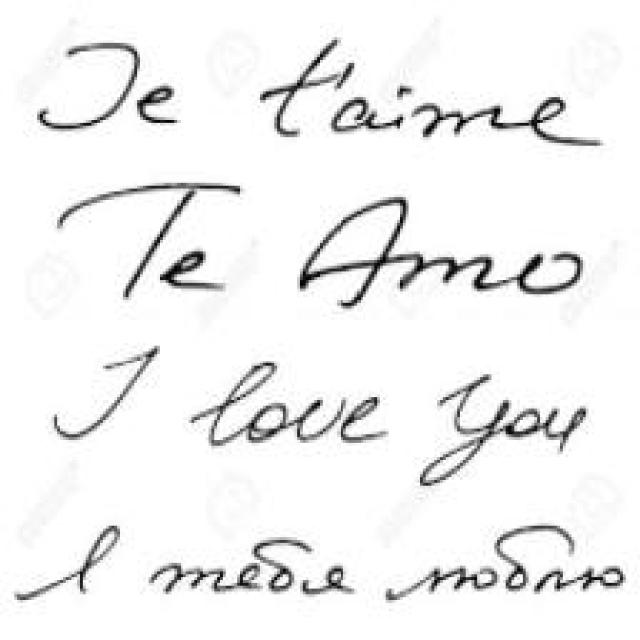 Je t'aime
Te Amo
I love you
Я тебя люблю